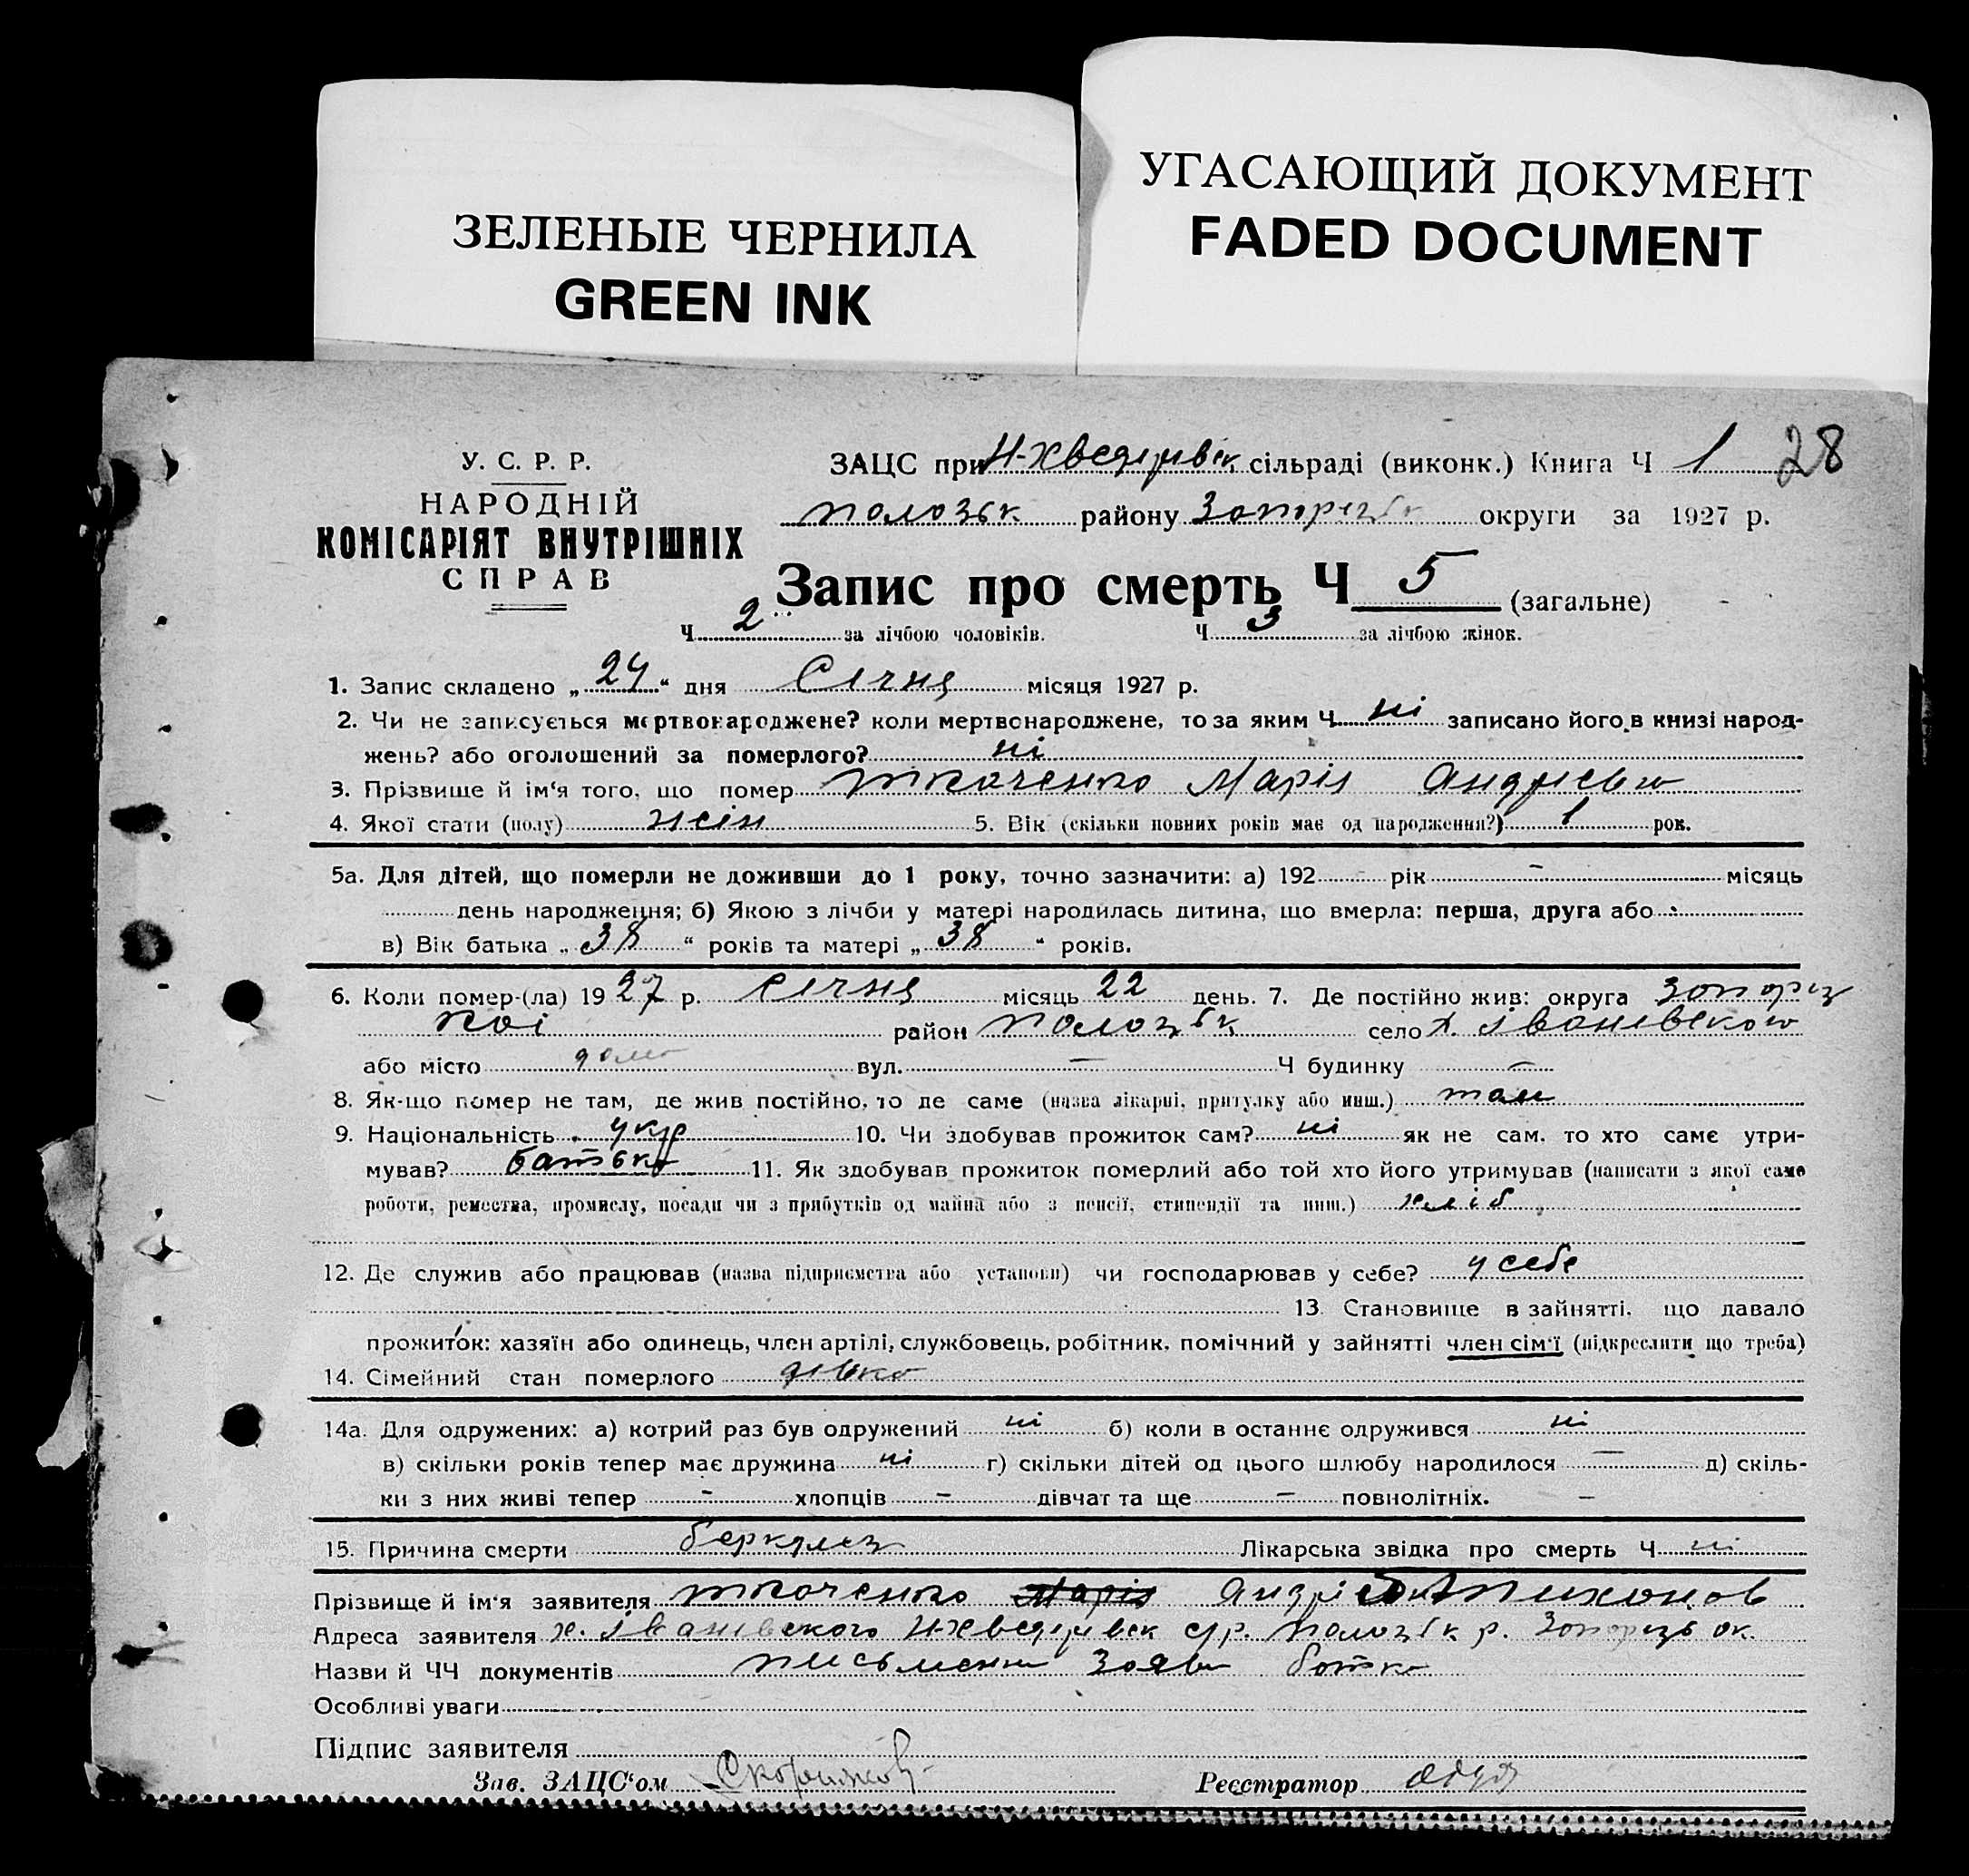 ЗЕЛЕНЫЕ ЧЕРНИЛА
GREEN INK
УГАСАЮЩИЙ ДОКУМЕНТ
FADED DOCUMENT
У. С. Р. Р.
НАРОДНІЙ
КОМІСАРІЯТ ВНУТРІШНІХ
СПРАВ
ЗАЦС при Н-Хведорівск сільраді (виконк.) Книга Ч 1 28
Полозьк району Запорізьк округи за 1927 р.
Запис про смерть Ч 5 (загальне)
Ч 2 за лічбою чоловіків. Ч 3 за лічбою жінок.
1. Запис складено „24“ дня Січня місяця 1927 р.
2. Чи не записується мертвонароджене? коли мертвонароджене, то за яким Ч ні записано його в книзі народ-
жень? або оголошений за померлого? ні
3. Прізвище й ім‘я того, що помер Ткаченко Марія Андрієва
4. Якої стати (полу) жін 5. Вік (скільки повних років має од народження?) 1 рок.
5а. Для дітей, що померли не доживши до 1 року, точно зазначити: а) 192 рік - місяць
день народження; б) Якою з лічби у матері народилась дитина, що вмерла: перша, друга або
в) Вік батька „38“ років та матері „38“ років.
6. Коли помер-(ла) 1927 р. Січня місяць 22 день. 7. Де постійно жив: округа Запоріз
кої район Полозьк село х. Іванівського
або місто вул. — Ч будинку —
8. Як-що помер не там, де жив постійно, то де саме (назва лікарні, притулку або инш.) там
9. Національність укр 10. Чи здобував прожиток сам? ні як не сам. то хто саме утри-
мував? батько 11. Як здобував прожиток померлий або той хто його утримував (написати з якої саме
роботи, ремества, промислу, посади чи з прибутків од майна або з пенсії, стипендії та инш.) хліб
12. Де служив або працював (назва підприємства або установи) чи господарював у себе? у себе
13 Становище в зайнятті, що давало
прожиток: хазяїн або одинець, член артілі, службовець, робітник, помічний у зайнятті член сім‘ї (підкреслити що треба)
14. Сімейний стан померлого дівка
14а. Для одружених: а) котрий раз був одружений ні б) коли в останнє одружився ні
в) скільки років тепер має дружина ні г) скільки дітей од цього шлюбу народилося — д) скіль-
ки з них живі тепер - хлопців - дівчат та ще — повнолітніх. —
15. Причина смерти Лікарська звідка про смерть Ч ні
Прізвище й ім‘я заявителя Ткаченко Марія Андрій Тихонов
Адреса заявителя х. Іванівского Н-Хведорівск с/р. Полозьк р. Запорізь ок.
Назви й ЧЧ документів письменна Заява батка
Особливі уваги
Підпис заявителя
Зав. ЗАЦС‘ом
Реєстратор